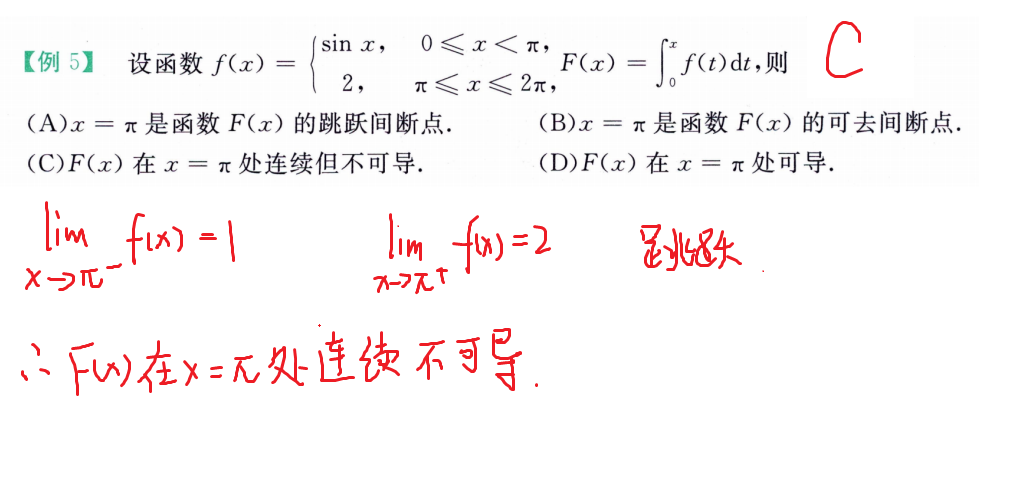 【例 5】 设函数 f(x) = { sin x, 0 ⩽ x < π, 2, π ⩽ x ⩽ 2π, F(x) = ∫₀ˣ f(t)dt,则 C
(A)x = π 是函数 F(x) 的跳跃间断点. (B)x = π 是函数 F(x) 的可去间断点.
(C)F(x) 在 x = π 处连续但不可导. (D)F(x) 在 x = π 处可导.
lim x→π⁻ f(x) = 1 lim x→π⁺ f(x) = 2 是跳跃
∴ F(x) 在 x = π 处连续不可导.